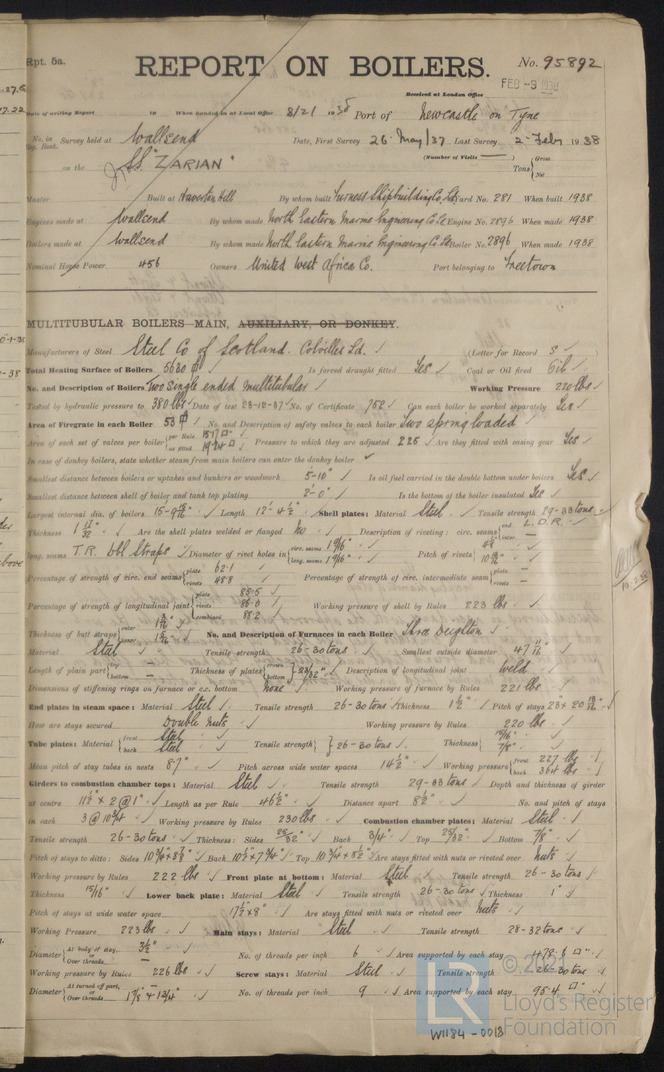 Rpt. 5a.
REPORT ON BOILERS.
No. 95892
FEB -9 1938
Received at London Office
Date of writing Report 19 When handed in at Local Office 8/2/ 1938 Port of Newcastle on Tyne
No. in Reg. Book. Survey held at Wallsend Date, First Survey 26 May/37. Last Survey 2 Feby 1938
on the S.S. "ZARIAN" (Number of Visits) Tons { Gross Net
Master Built at Haverton Hill By whom built Furness Shipbuilding Co. Ltd. Yard No. 281 When built 1938
Engines made at Wallsend By whom made North Eastern Marine Engineering Co Ld Engine No. 2896 When made 1938
Boilers made at Wallsend By whom made North Eastern Marine Engineering Co Ld Boiler No. 2896 When made 1938
Nominal Horse Power 456 Owners United West Africa Co. Port belonging to Freetown
MULTITUBULAR BOILERS—MAIN, AUXILIARY, OR DONKEY.
Manufacturers of Steel Steel Co of Scotland. Colvilles Ld. (Letter for Record S)
Total Heating Surface of Boilers 5630 Is forced draught fitted Yes Coal or Oil fired Oil
No. and Description of Boilers Two single ended multitubular Working Pressure 220 lbs
Tested by hydraulic pressure to 380 lbs Date of test 23-12-37 No. of Certificate 752 Can each boiler be worked separately Yes
Area of Firegrate in each Boiler No. and Description of safety valves to each boiler Two spring loaded
Area of each set of valves per boiler { per Rule as fitted Pressure to which they are adjusted 225 Are they fitted with easing gear Yes
In case of donkey boilers, state whether steam from main boilers can enter the donkey boiler
Smallest distance between boilers or uptakes and bunkers or woodwork 5'-10" Is oil fuel carried in the double bottom under boilers Yes
Smallest distance between shell of boiler and tank top plating 2'-0" Is the bottom of the boiler insulated Yes
Largest internal dia. of boilers Length 12'-4½" Shell plates: Material Steel Tensile strength 29-33 tons
Thickness 1 17/32 Are the shell plates welded or flanged No Description of riveting: circ. seams { end L.D.R. inter.
long. seams T.R. Dbl Straps Diameter of rivet holes in { circ. seams 1 9/16 long. seams 1 9/16 Pitch of rivets
Percentage of strength of circ. end seams { plate 62.1 rivets 48.8 Percentage of strength of circ. intermediate seam { plate rivets
Percentage of strength of longitudinal joint { plate 85.5 rivets 86.0 combined 88.2 Working pressure of shell by Rules 223 lbs
Thickness of butt straps { outer inner No. and Description of Furnaces in each Boiler Three Deighton
Material Steel Tensile strength 26-30 tons Smallest outside diameter 47
Length of plain part { top bottom Thickness of plates { crown bottom } 23/32" Description of longitudinal joint Weld
Dimensions of stiffening rings on furnace or c.c. bottom None Working pressure of furnace by Rules 221 lbs
End plates in steam space: Material Steel Tensile strength 26-30 tons Thickness 1½" Pitch of stays
How are stays secured Double nuts Working pressure by Rules 220 lbs
Tube plates: Material { front Steel back Steel Tensile strength { 26-30 tons Thickness { 15/16" 7/8"
Mean pitch of stay tubes in nests 8.7" Pitch across wide water spaces 14½" Working pressure { front 227 lbs back 364 lbs
Girders to combustion chamber tops: Material Steel Tensile strength 29-33 tons Depth and thickness of girder
at centre 11½" x 2 @ 1" Length as per Rule 46½" Distance apart 8½" No. and pitch of stays
in each 3 @ 10¾" Working pressure by Rules 230 lbs Combustion chamber plates: Material Steel
Tensile strength 26-30 tons Thickness: Sides 25/32" Back 3/4" Top 25/32" Bottom 7/8"
Pitch of stays to ditto: Sides Back 10½" x 7¾" Top 10¾" x 8½" Are stays fitted with nuts or riveted over nuts
Working pressure by Rules 222 lbs Front plate at bottom: Material Steel Tensile strength 26-30 tons
Thickness 15/16" Lower back plate: Material Steel Tensile strength 26-30 tons Thickness 1"
Pitch of stays at wide water space Are stays fitted with nuts or riveted over Nuts
Working Pressure 223 lbs Main stays: Material Steel Tensile strength 28-32 tons
Diameter { At body of stay, or Over threads 3½" No. of threads per inch 6 Area supported by each stay
Working pressure by Rules 226 lbs Screw stays: Material Steel Tensile strength 26-30 tons
Diameter { At turned off part, or Over threads 1⅞" & 1¾" No. of threads per inch 9 Area supported by each stay 95.4
W1184-0013
LR
© 2021
Lloyd's Register
Foundation